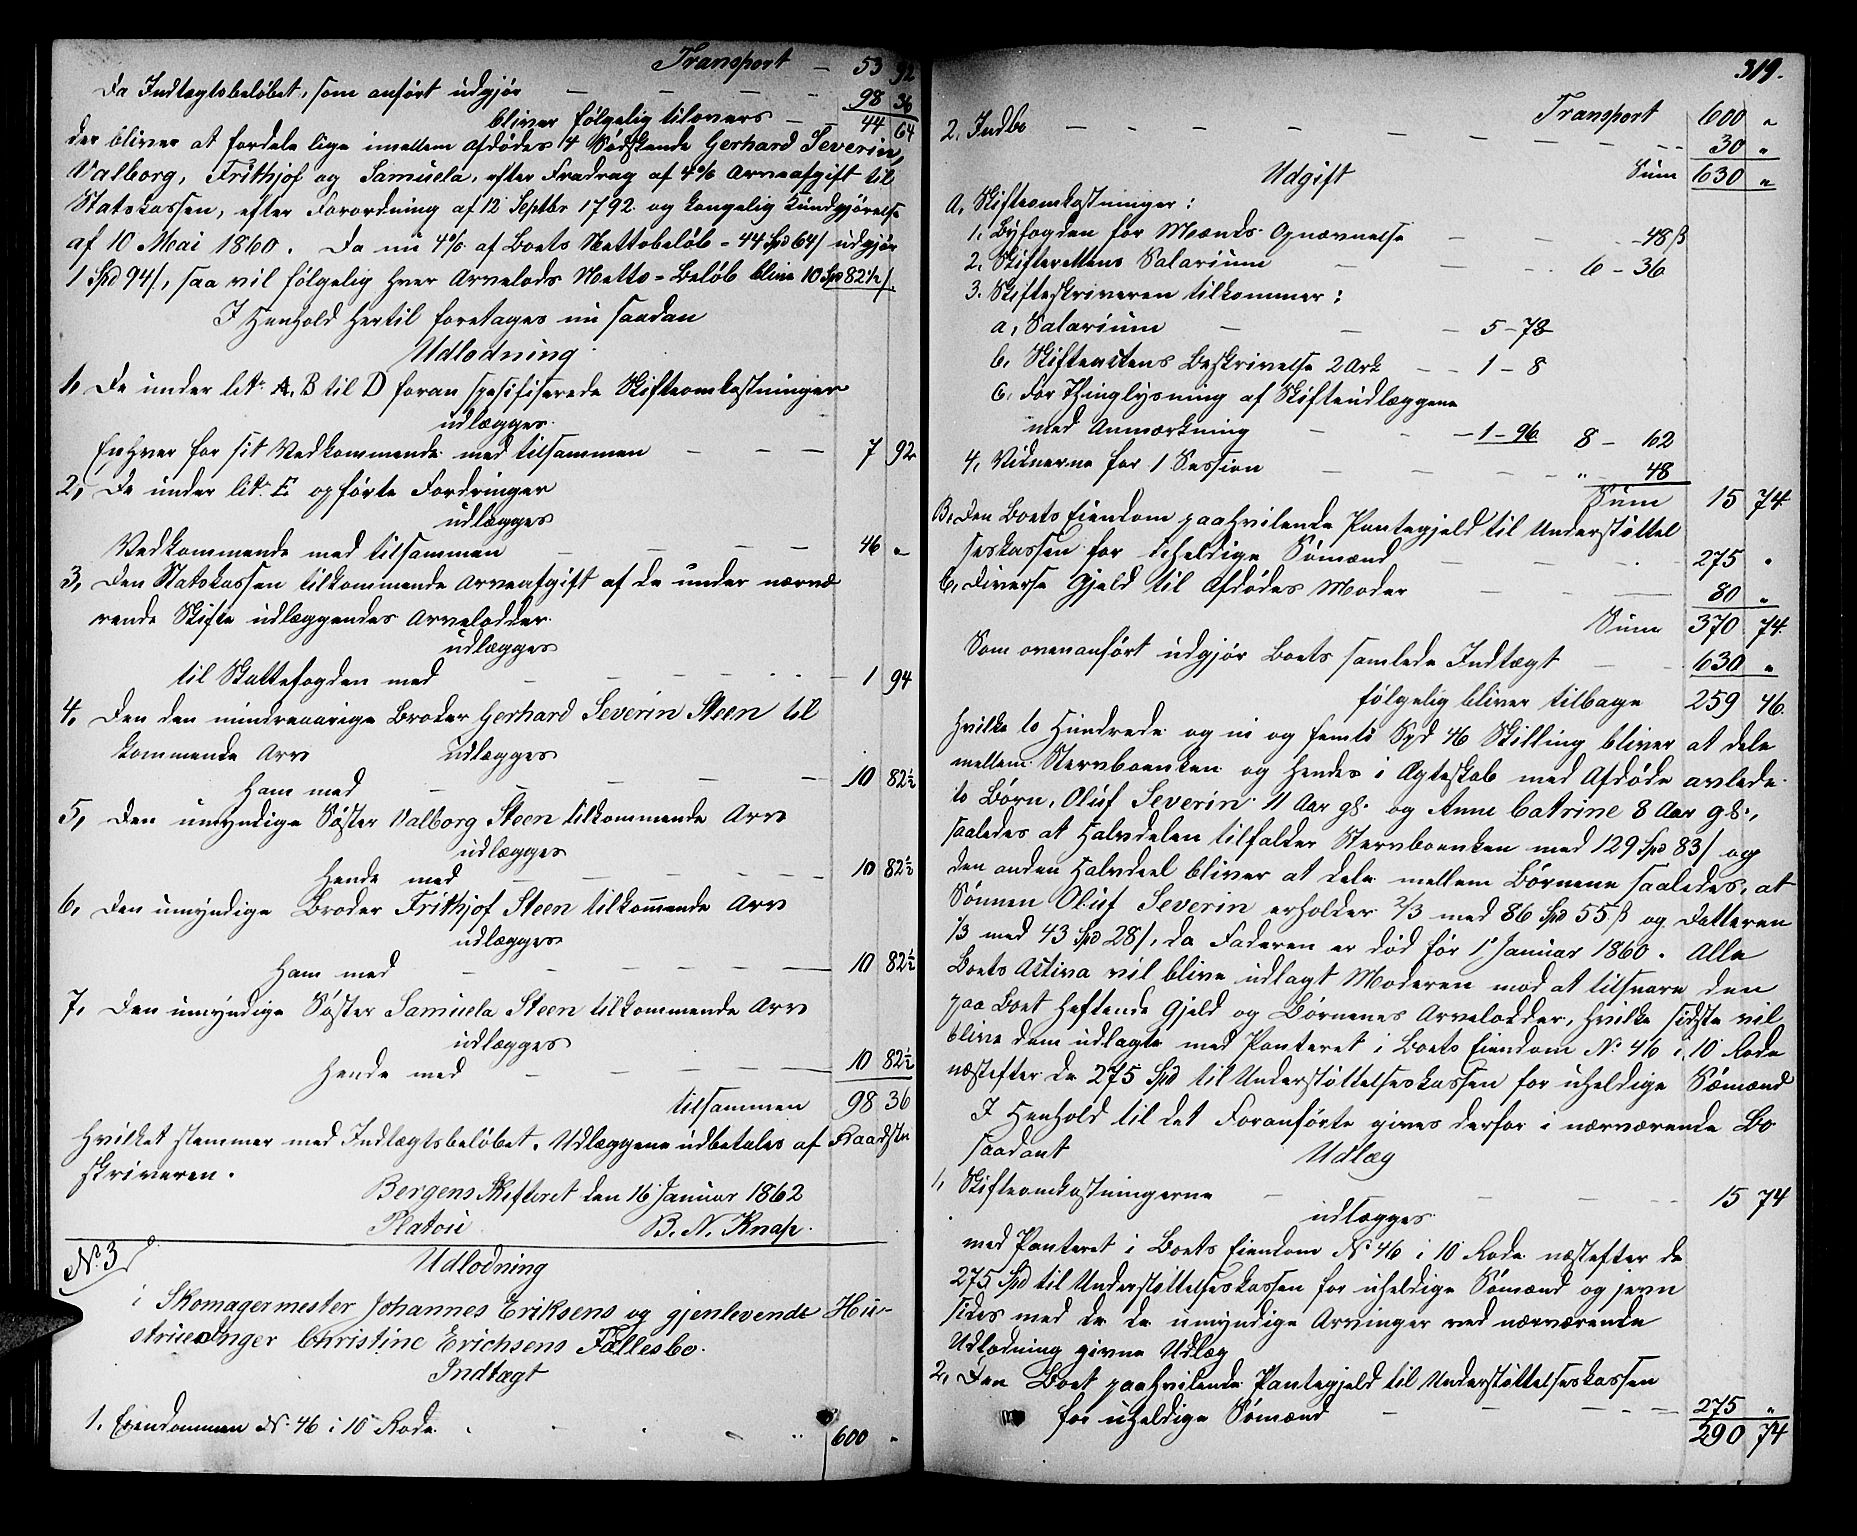 Transport – 53 92
Da Indtægtsbeløbet, som anført udgjør – – – – 98 36
bliver følgelig tilovers – – 44 64
der bliver at fordele lige imellem afdødes 4 Sødskende Gerhard Severin,
Valborg, Frithjof og Samuela, efter Fradrag af 4% Arveafgift til
Statskassen, efter Forordning af 12 Septbr 1792 og kongelig Kundgjørelse
af 10 Mai 1860. Da nu 4% af Boets Nettobeløb - 44 Spd 64 ß udgjør
1 Spd 94 ß, saa vil følgelig hver Arvelods Netto-Beløb blive 10 Spd 82½ ß.
I Henhold hertil foretages nu saadan
Udlodning.
1, De under litr. A, B til D foran spesifiserede Skifteomkostninger
udlægges.
Enhver for sit Vedkommende med tilsammen – – – – 7 92
2, De under litr. E opførte Fordringer
udlægges
Vedkommende med tilsammen – – – – 46 „
3, Den Statskassen tilkommende Arveafgift af de under nærvæ
rende Skifte udlæggendes Arvelodder.
udlægges
til Skattefogden med – – – – – 1 94
4, Den den mindreaarige Broder Gerhard Severin Steen til
kommende Arv udlægges
Ham med – – – – 10 82½
5, Den umyndige Søster Valborg Steen tilkommende Arv
udlægges
Hende med – – – – – 10 82½
6, Den umyndige Broder Frithjof Steen tilkommende Arv
udlægges
Ham med – – – – – 10 82½
7, Den umyndige Søster Samuela Steen tilkommende Arv
udlægges
Hende med – – – – – 10 82½
tilsammen 98 36
Hvilket stemmer med Indtægtsbeløbet. Udlæggene udbetales af Raadstu
skriveren.
Bergens Skifteret den 16 Januar 1862
Platou B. N. Knap.
No 3 Udlodning
i Skomagermester Johannes Eriksens og gjenlevende Hu-
strue Inger Christine Erichsens Fællesbo.
Indtægt
1, Eiendommen No 46 i 10 Rode. . . . „ 600 „
319.
Transport 600 „
2, Indbo – – – – – – – – – 30 „
Udgift Sum 630 „
A, Skifteomkostninger:
1, Byfogden for Mænds Opnævnelse – – – 48 ß
2, Skifterettens Salarium – – – 6 – 36
3. Skifteskriveren tilkommer:
a, Salarium – – – 5-78
b, Skifteaktens Beskrivelse 2 Ark – – 1 – 8
c, For Thinglysning af Skifteudlæggene
med Anmærkning – – – 1-96 8 – 62
4, Vidnerne for 1 Session – – – – „ 48
Sum 15 74
B, Den Boets Eiendom paahvilende Pantegjeld til Understøttel
seskassen for uheldige Sømænd – – – – 275 „
C, Diverse Gjeld til Afdødes Moder – – – 80 „
Sum 370 74
Som ovenanført udgjør Boets samlede Indtægt – – 630 „
følgelig bliver tilbage 259 46.
Hvilke to Hundrede og ni og femti Spd 46 Skilling bliver at dele
mellem Stervboenken og hendes i Ægteskab med Afdøde avlede
to Børn, Oluf Severin 11 Aar gl. og Anne Catrine 8 Aar gl.,
saaledes at Halvdelen tilfalder Stervboenken med 129 Spd 83 ß og
den anden Halvdeel bliver at dele mellem Børnene saaledes, at
Sønnen Oluf Severin erholder 2/3 med 86 Spd 55 ß og Datteren
1/3 med 43 Spd 28 ß, da Faderen er død før 1 Januar 1860. Alle
Boets Activa vil blive udlagt Moderen mod at tilsvare den
paa Boet heftende Gjeld og Børnenes Arvelodder, hvilke sidste vil
blive dem udlagte med Panteret i Boets Eiendom No 46 i 10 Rode
næstefter de 275 Spd til Understøttelseskassen for uheldige Sømænd
I Henhold til det Foranførte gives derfor i nærværende Bo
saadant Udlæg
1, Skifteomkostningerne – – – – – 15 74
udlægges
med Panteret i Boets Eiendom No 46 i 10 Rode næstefter de
275 Spd til Understøttelseskassen for uheldige Sømænd og jevn
sides med de de umyndige Arvinger ved nærværende
Udlodning givne Udlæg
2, Den Boet paahvilende Pantegjeld til Understøttelseskassen
for uheldige Sømænd – – – – – 275 „
290 74